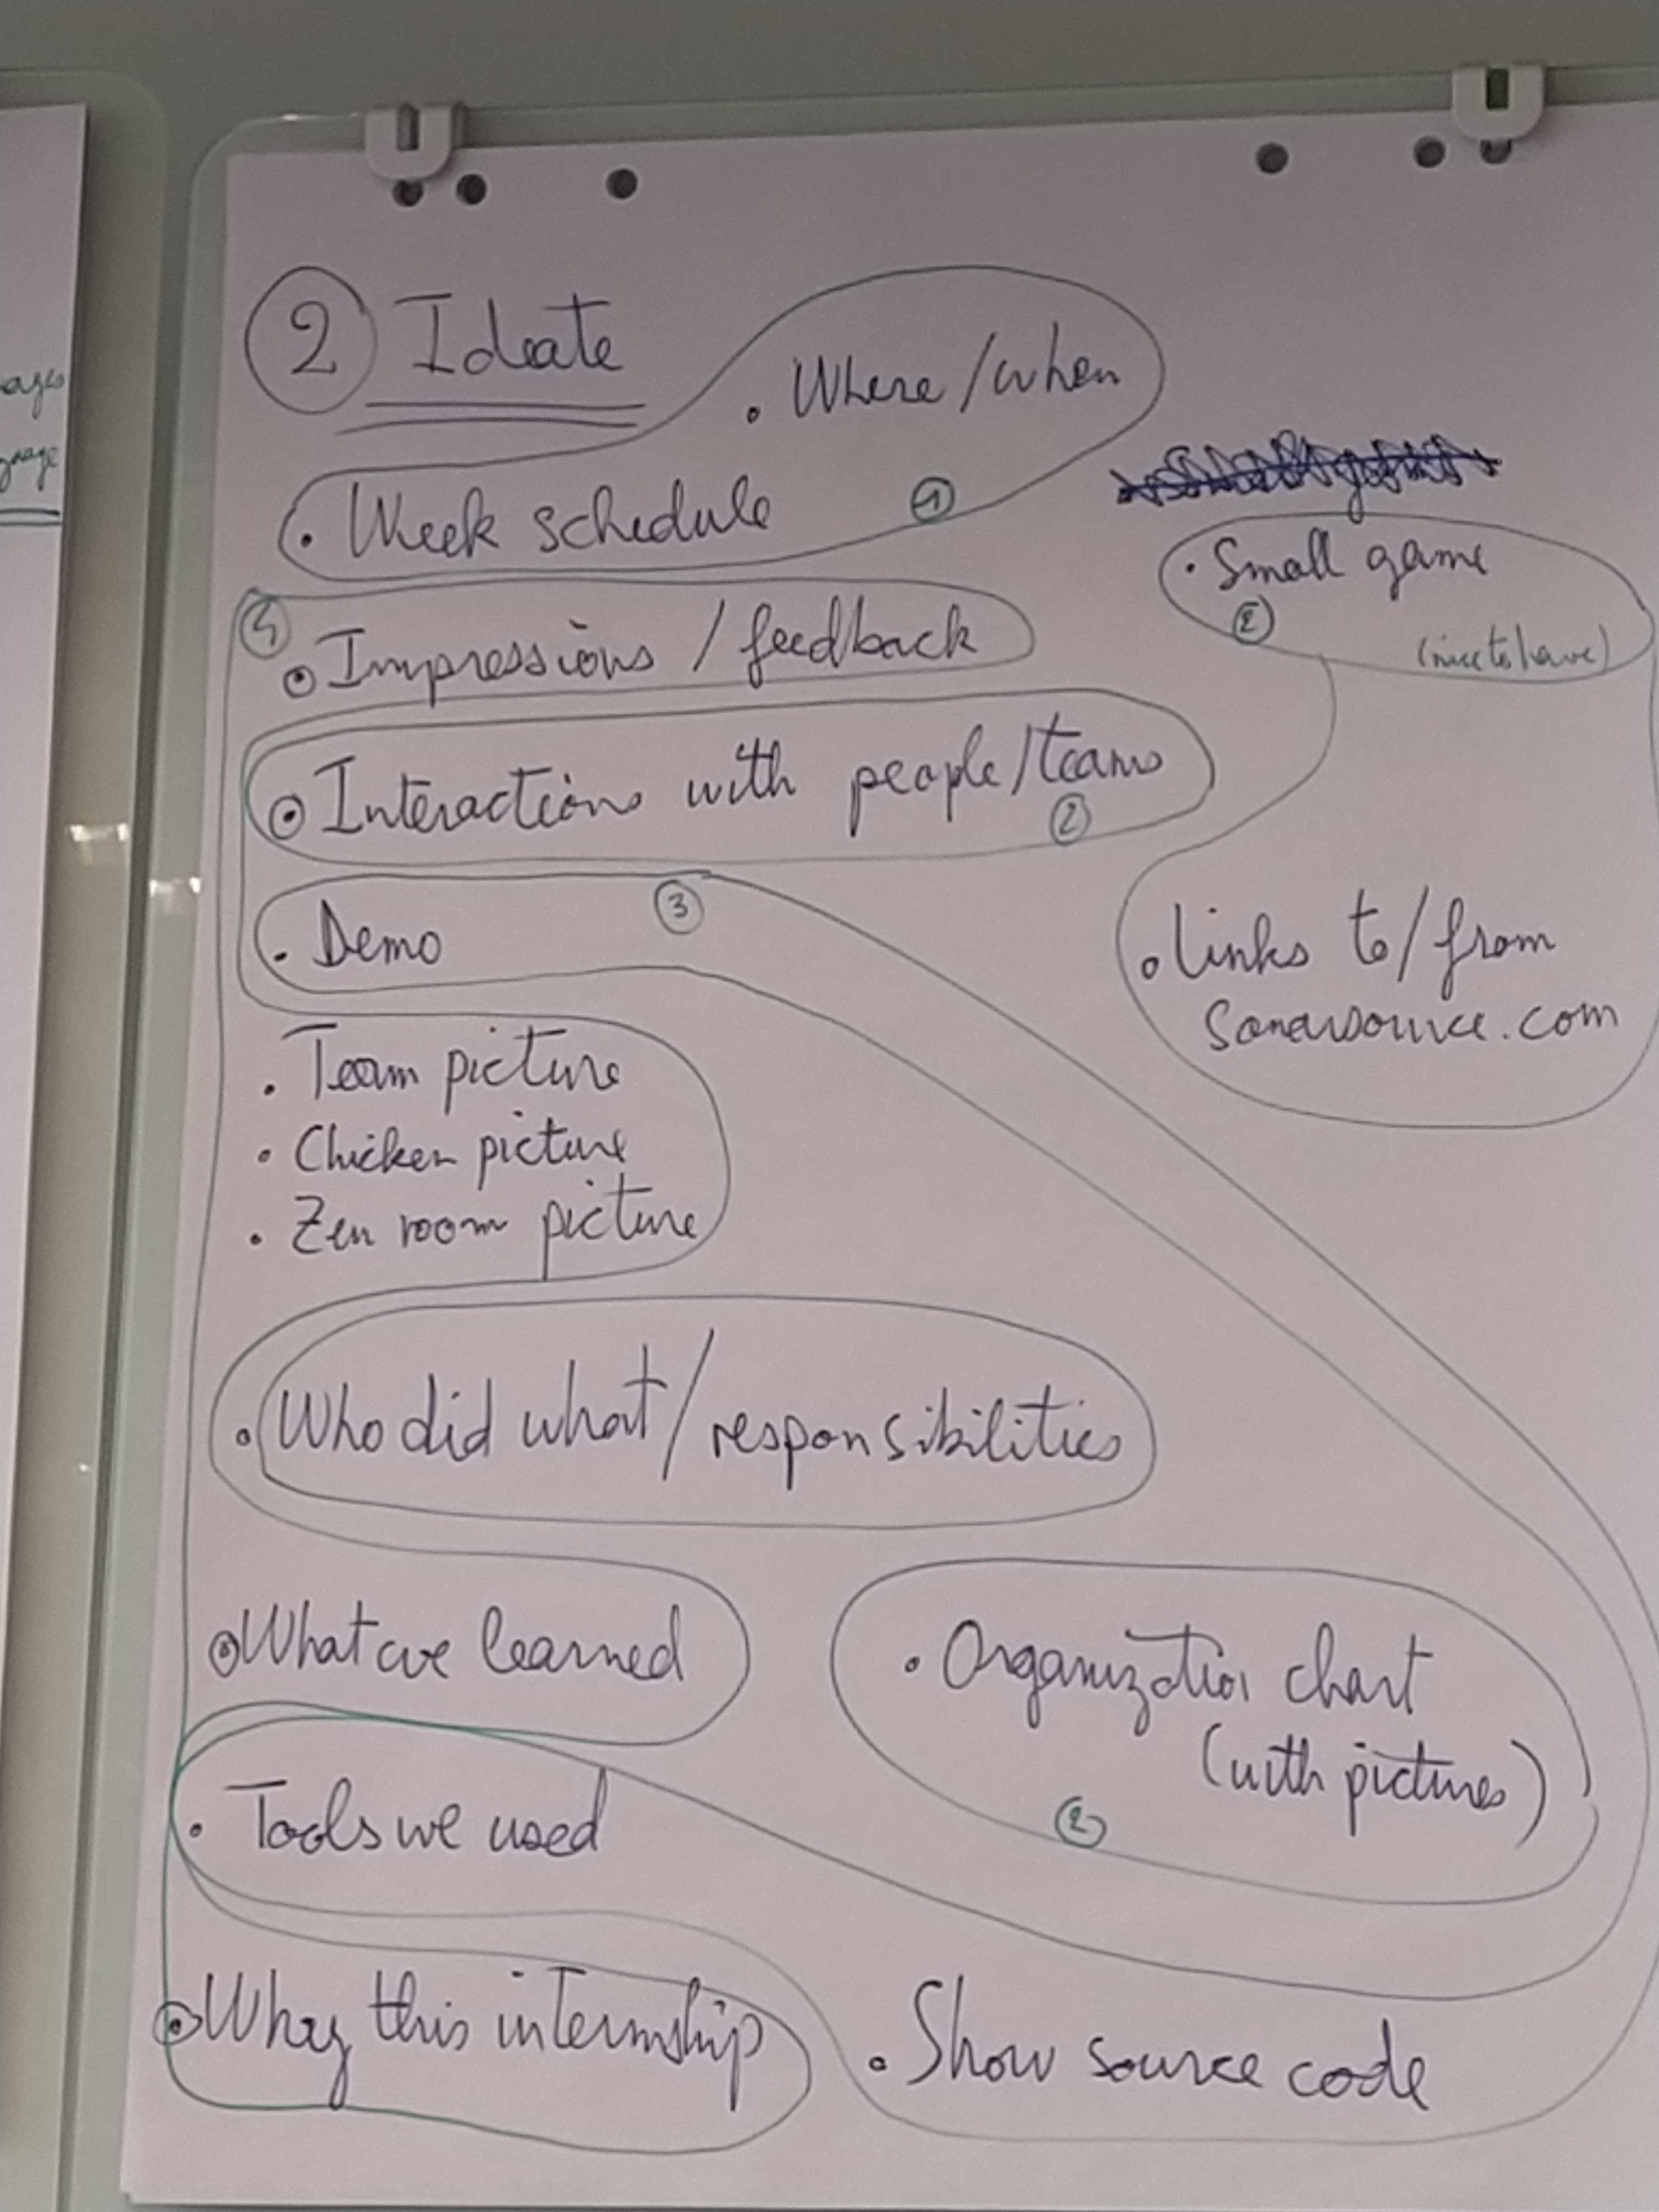 2 Ideate
. Where/when
. Week schedule 1
. Small game
2 (nice to have)
4
. Impressions / feedback
. Interactions with people/teams
2
3
. Demo
. links to/from
Sonarsource.com
. Team picture
. Chicken picture
. Zen room picture
. Who did what/responsibilities
. What we learned
. Organization chart
(with pictures)
2
. Tools we used
. Why this internship
. Show source code